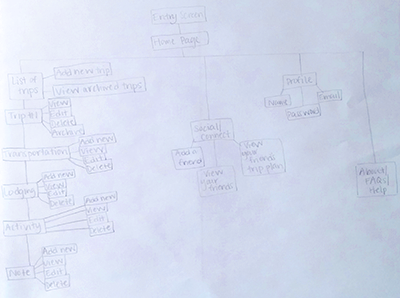 Entry Screen
Home Page
List of trips
Add new trip
View archived trips
Trip
View
Edit
Delete
Archive
Transportation
Add new
View
Edit
Delete
Lodging
Add new
View
Edit
Delete
Activity
Add new
View
Edit
Delete
Note
Add new
View
Edit
Delete
Social
Connect
Add a
friend
View
your
friends
View
your
friends
trip plan
Profile
Name
Email
About
FAQs
Help